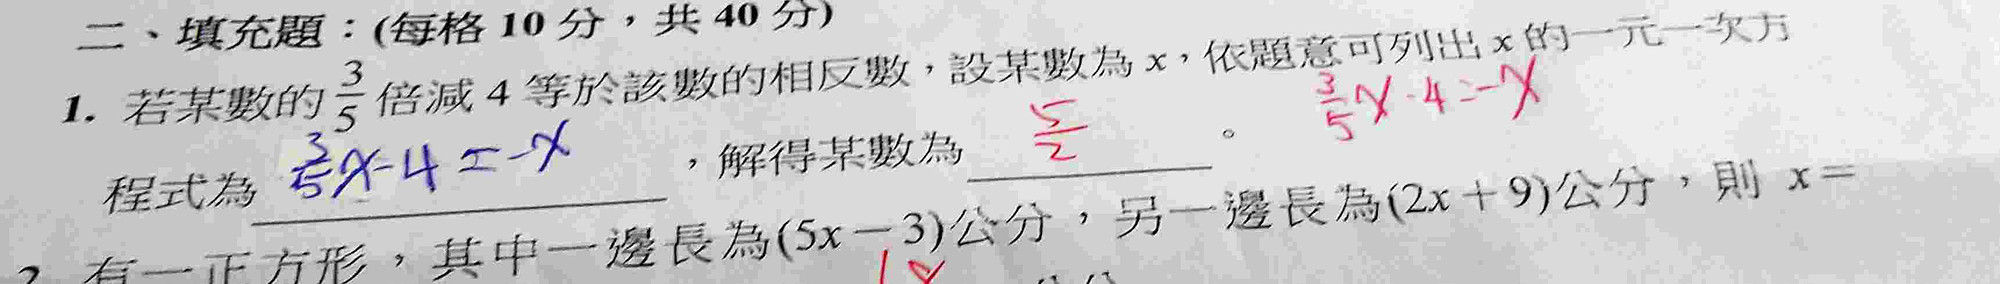 二、填充題：(每格 10 分，共 40 分)
1. 若某數的 3/5 倍減 4 等於該數的相反數，設某數為 x，依題意可列出 x 的一元一次方
3/5x-4=-x
程式為 3/5x-4=-x ，解得某數為 5/2 。
2. 有一正方形，其中一邊長為(5x－3)公分，另一邊長為(2x＋9)公分，則 x＝